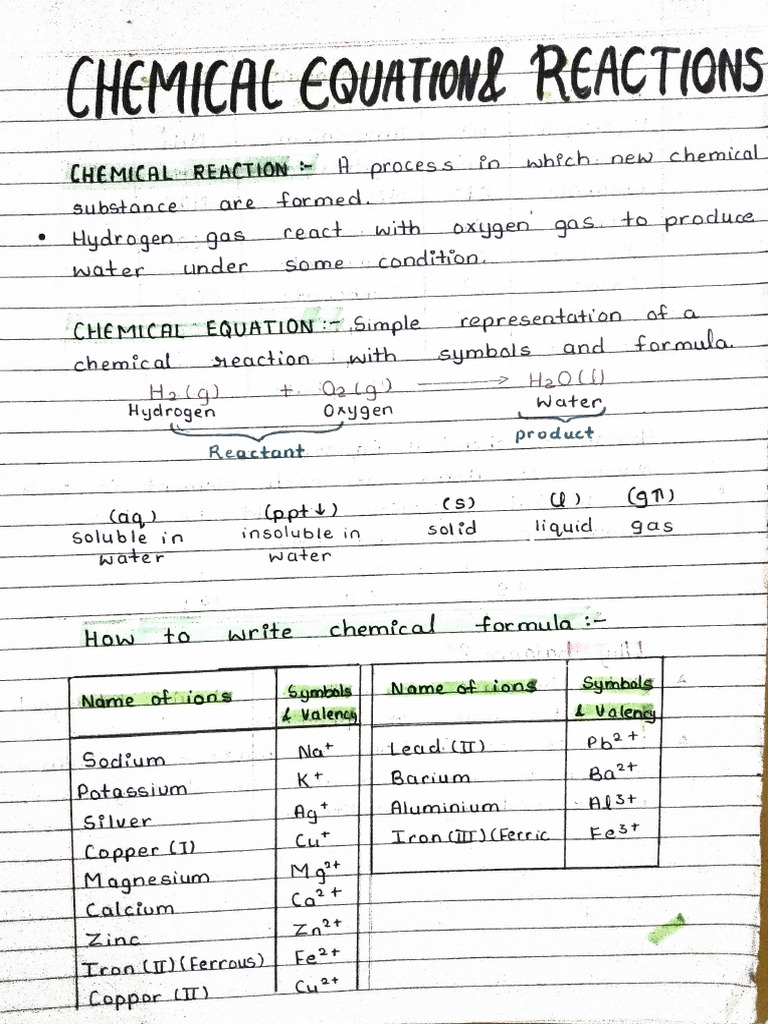 CHEMICAL EQUATION & REACTIONS
CHEMICAL REACTION :- A process in which new chemical
substance are formed.
• Hydrogen gas react with oxygen gas to produce
water under some condition.
CHEMICAL EQUATION :- Simple representation of a
chemical reaction with symbols and formula.
H₂(g) + O₂(g) → H₂O(l)
Hydrogen Oxygen Water
Reactant product
(aq) (ppt↓) (s) (l) (g↑)
soluble in insoluble in solid liquid gas
water water
How to write chemical formula :-
Name of ions Symbols & Valency Name of ions Symbols & Valency
Sodium Na⁺ Lead (II) Pb²⁺
Potassium K⁺ Barium Ba²⁺
Silver Ag⁺ Aluminium Al³⁺
Copper (I) Cu⁺ Iron (III) (Ferric Fe³⁺
Magnesium Mg²⁺
Calcium Ca²⁺
Zinc Zn²⁺
Iron (II) (Ferrous) Fe²⁺
Copper (II) Cu²⁺